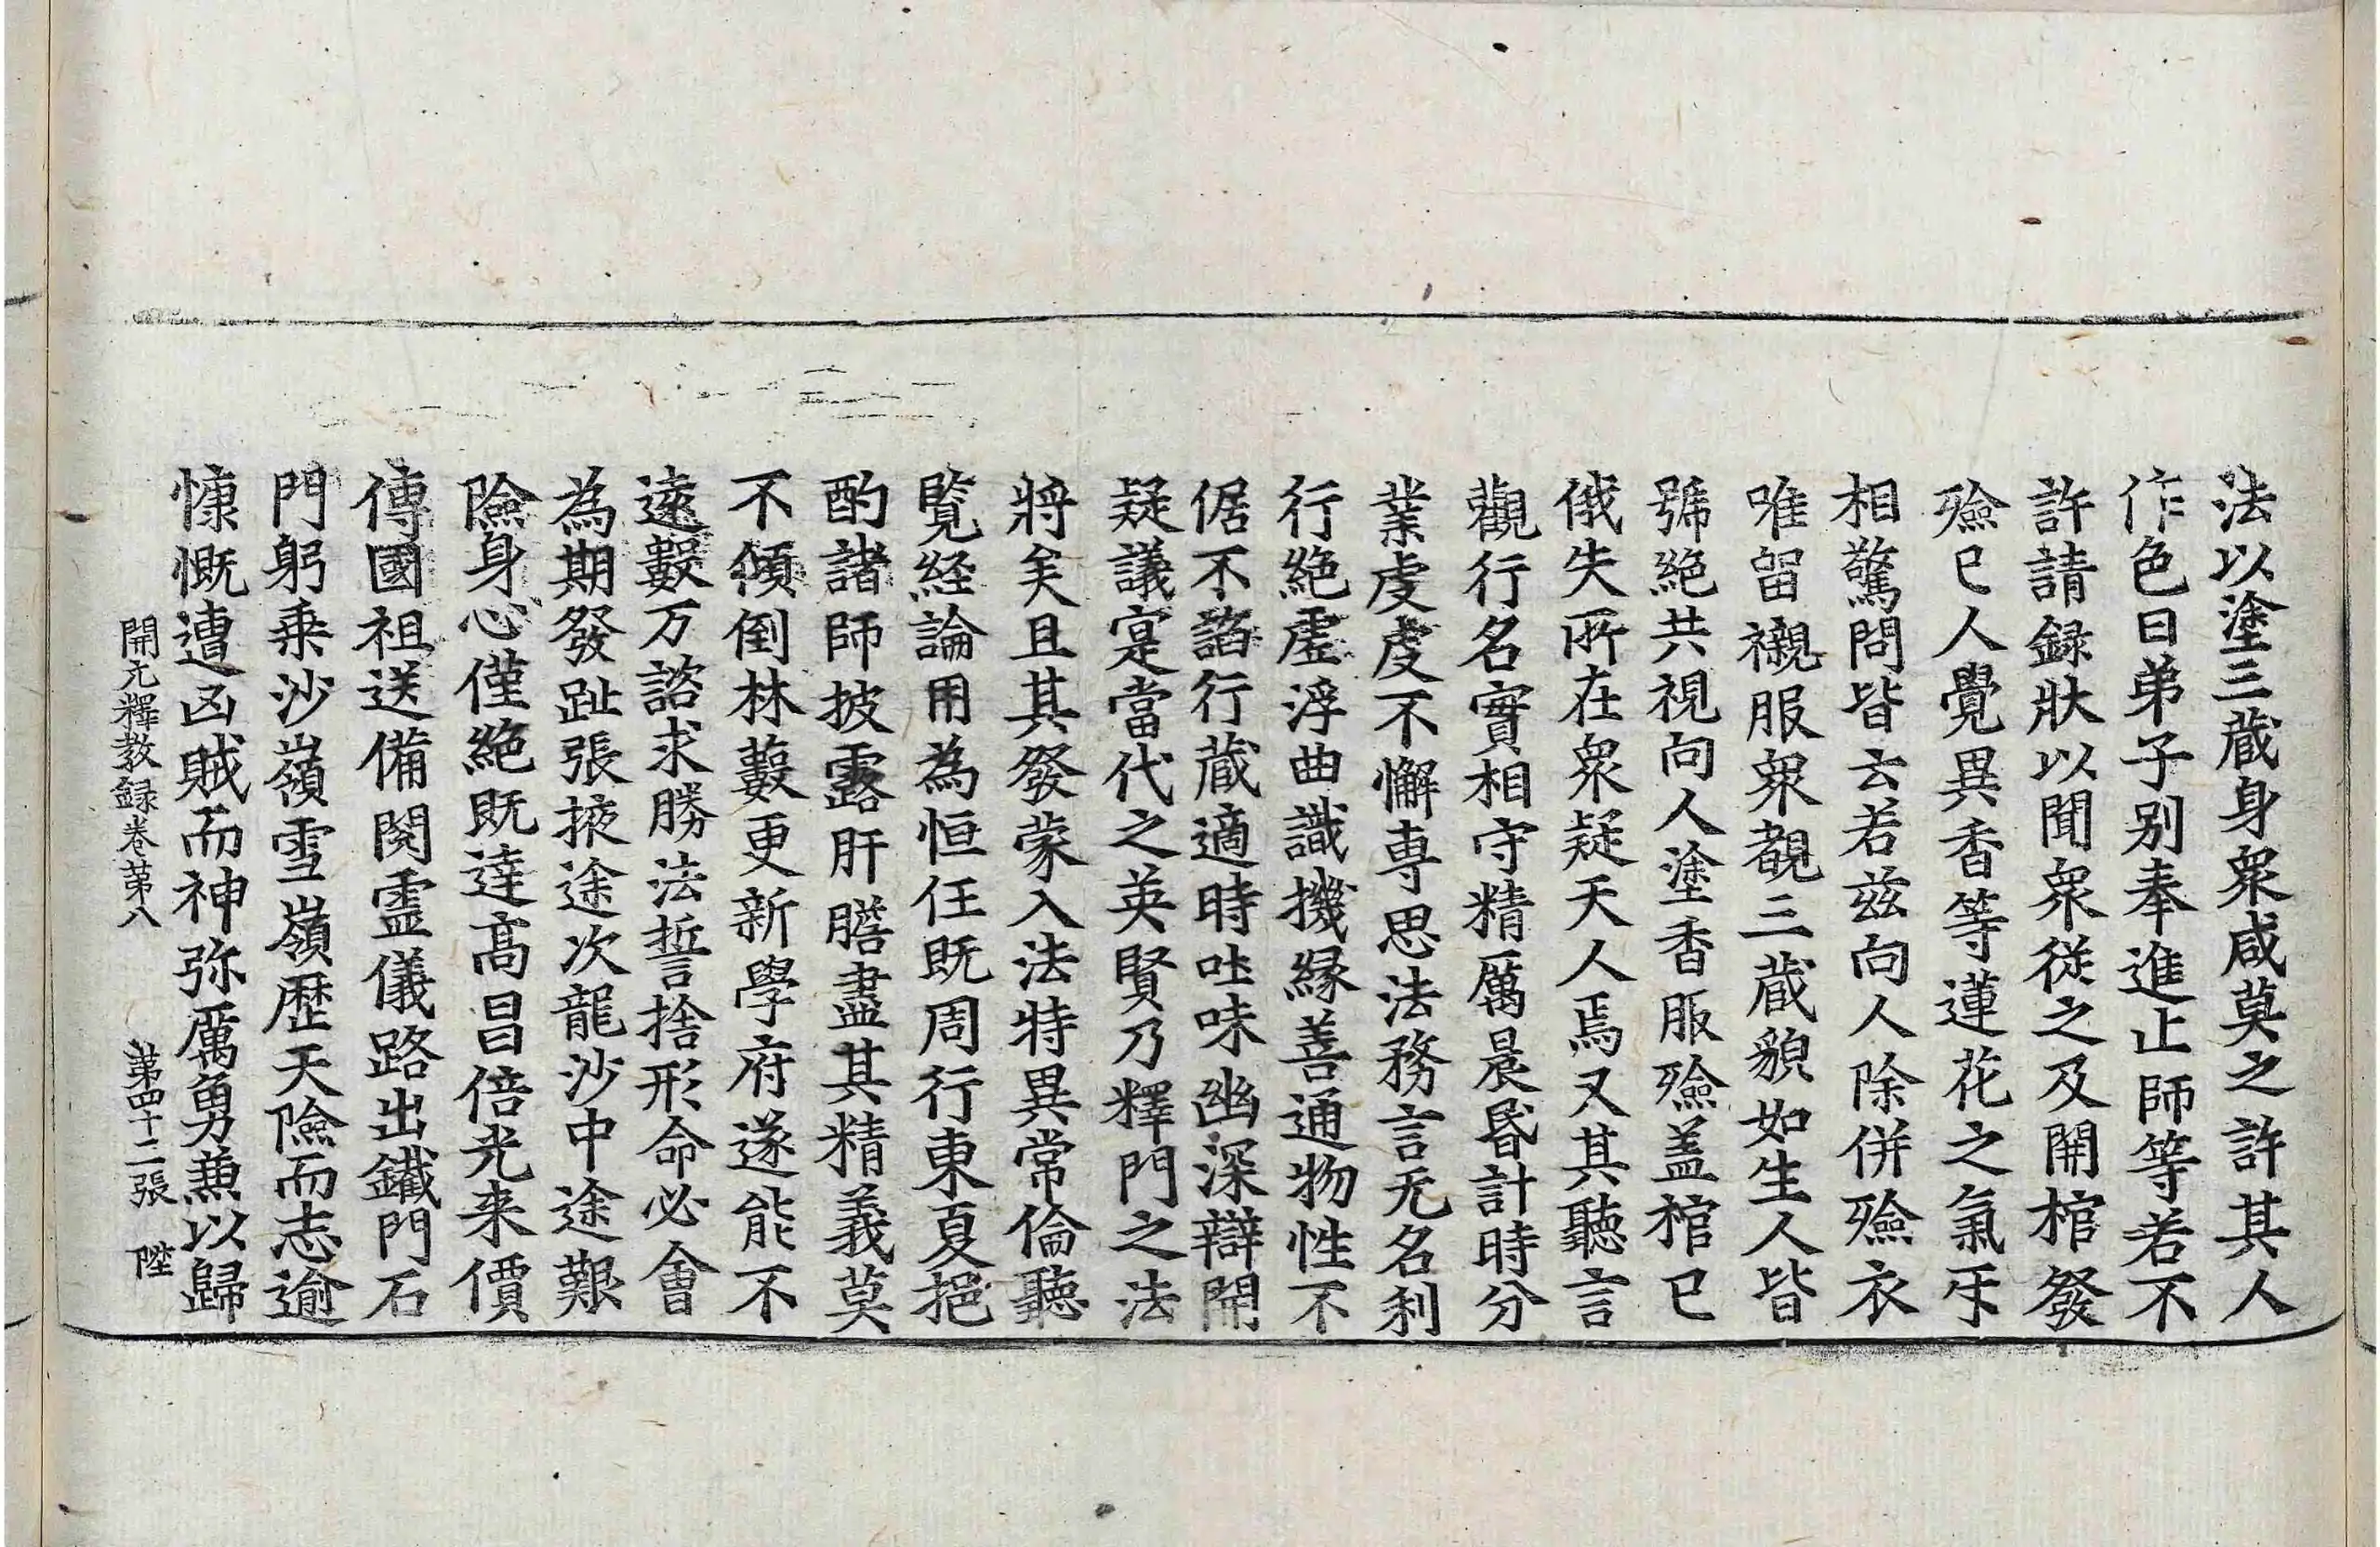 法以塗三蔵身衆咸莫之許其人
作色曰弟子别奉進止師等若不
許請録狀以聞衆従之及開棺發
殮已人覺異香等蓮花之氣㸦
相驚問皆云若茲向人除併殮衣
唯留襯服衆覩三蔵貌如生人皆
號絶共視向人塗香服殮盖棺已
俄失所在衆疑天人焉又其聽言
觀行名實相守精厲晨昬計時分
業虔虔不懈専思法務言无名利
行絶虛浮曲識機縁善通物性不
倨不諂行蔵適時吐味幽深辯開
疑議寔當代之英賢乃釋門之法
將矣且其發蒙入法特異常倫聽
覧経論用為恒任既周行東夏挹
酌諸師披露肝膽盡其精義莫
不傾倒林藪更新學府遂能不
逺數万諮求勝法誓捨形命必會
為期發趾張掖途次龍沙中途艱
險身心僅絶既達高昌倍光来價
傳國祖送備閱靈儀路出鐵門石
門躬乗沙嶺雪嶺歷天險而志逾
慷慨遭凶賊而神弥厲勇兼以歸
開元釋教録卷苐八 苐四十二張 陞